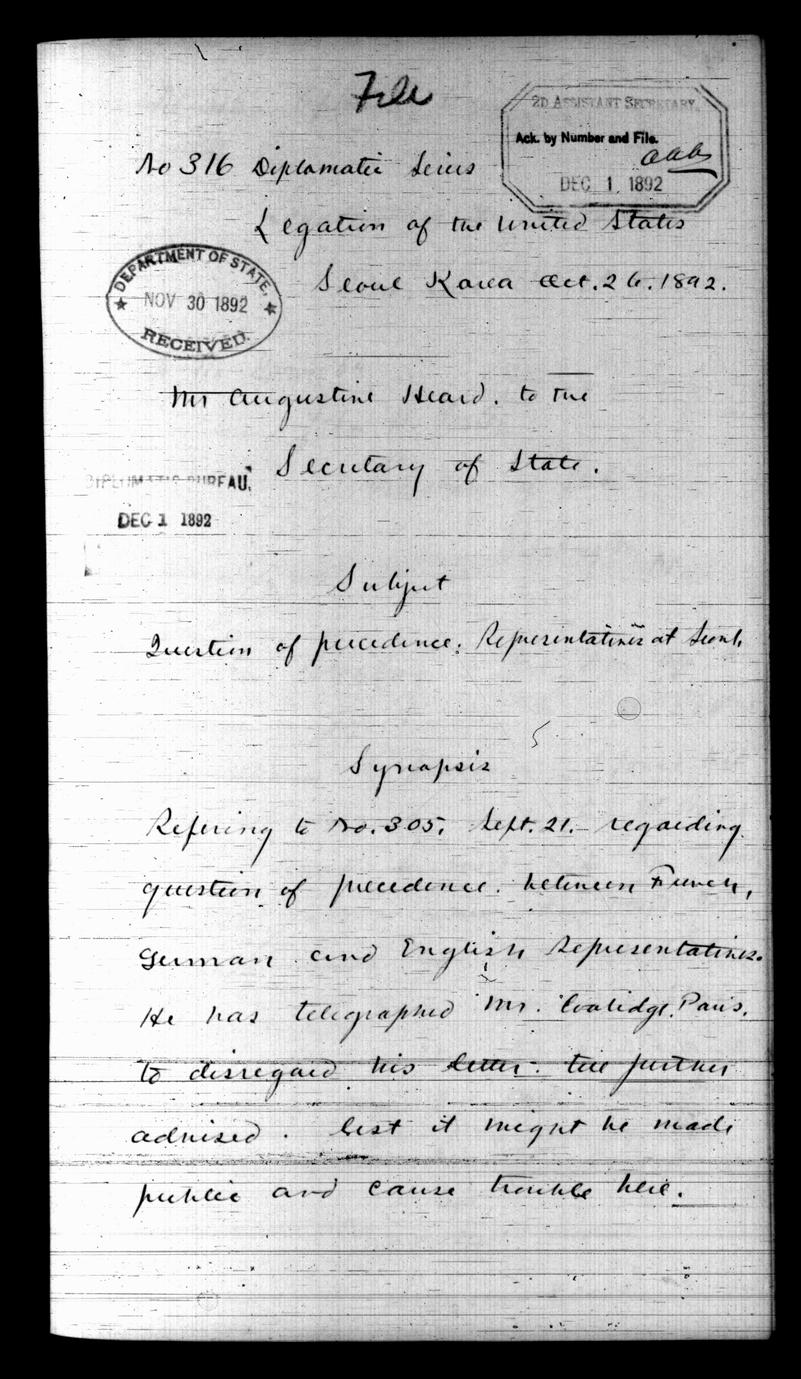 File
2D ASSISTANT SECRETARY.
Ack. by Number and File.
aab
DEC 1 1892
No 316 Diplomatic Series
Legation of the United States
Seoul Korea Oct. 26. 1892.
DEPARTMENT OF STATE,
NOV 30 1892
RECEIVED.
Mr Augustine Heard. to the
Secretary of State.
DIPLOMATIC BUREAU,
DEC 1 1892
Subject
Question of precedence: Representatives at Seoul,
Synopsis
Refering to No. 305, Sept. 21. regarding
question of precedence. between French,
German and English Representatives.
He has telegraphed Mr. Coolidge. Paris.
to disregard his letter. till further
advised. lest it might be made
public and cause trouble here.